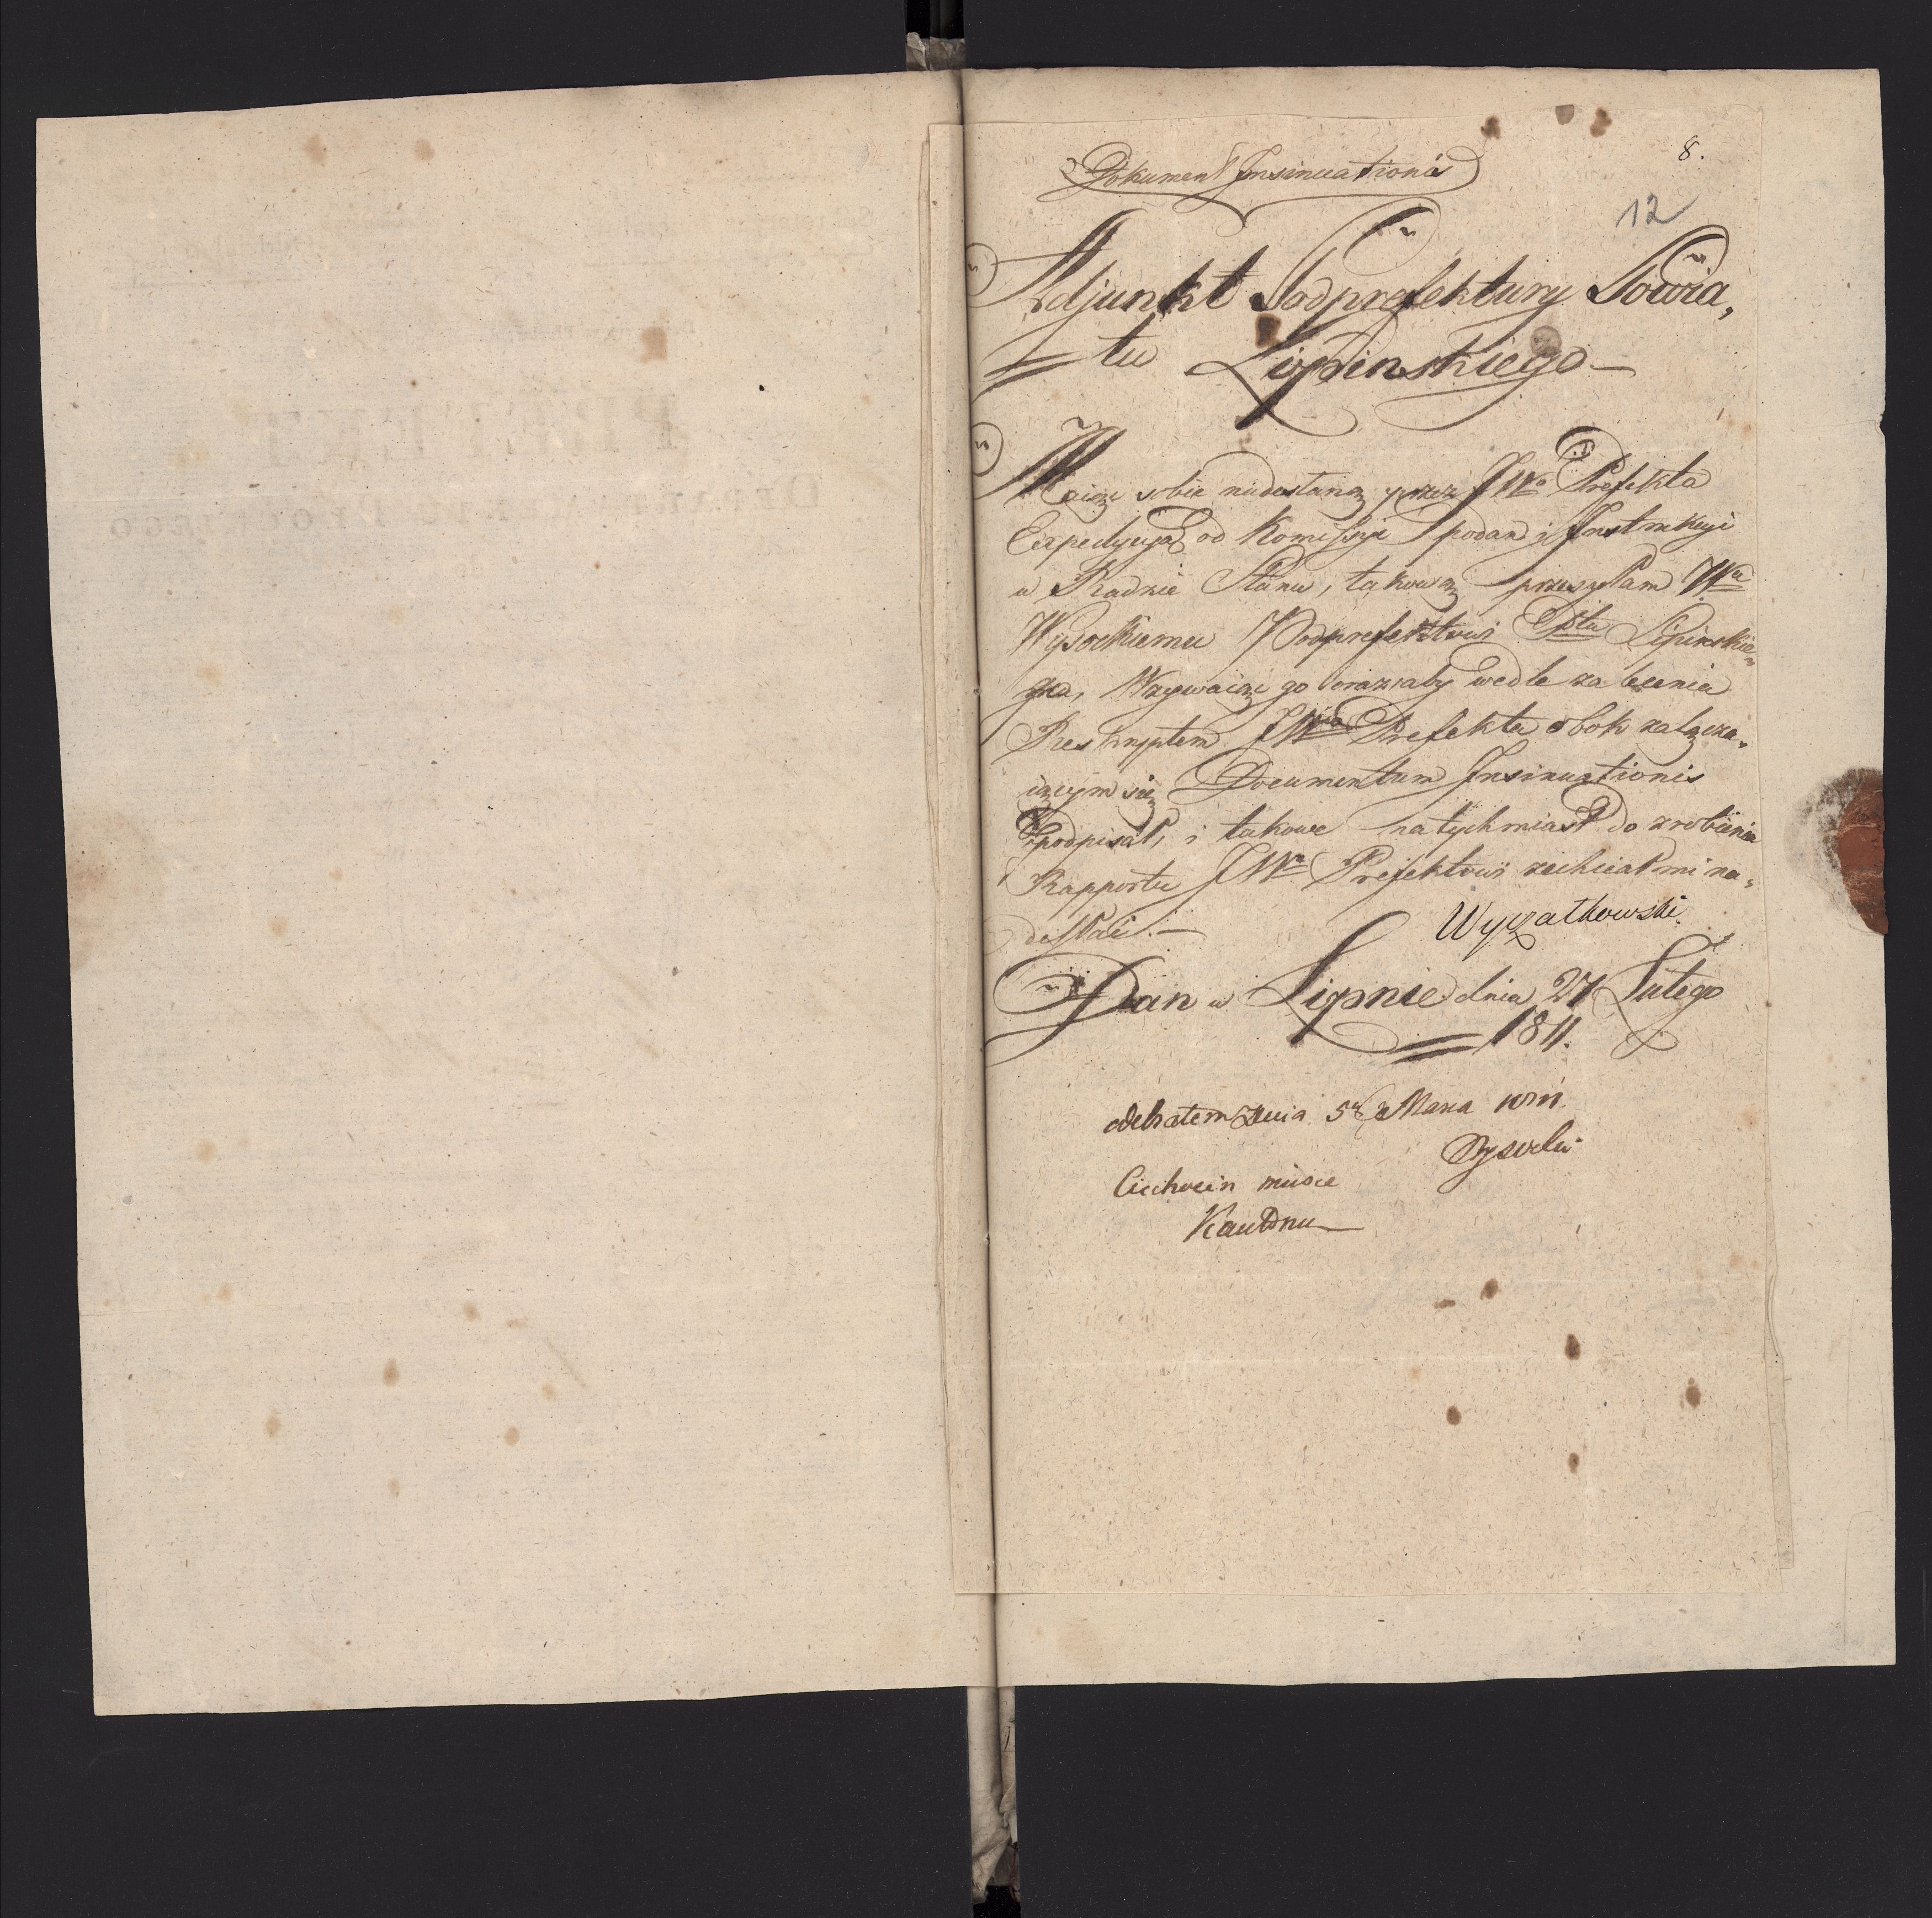 8.
12
Dokument Insinuationis
Adjunkt Podprefektury Powia,
tu Lipinskiego —
Maiąc sobie nadesłaną przez JWo Prefekta
Expedycyą od Komissyi podan i Instrukcyi
w Radzie Stanu, takową przesyłam Wu
Wysockiemu Podprefektowi Ptu Lipinskie„
go, Wzywaiąc go oraz aby wedle zalecenia
Reskryptem JWgo Prefekta obok załącza„
iącym się Documentum Insinuationis
podpisał, i takowe natychmiast do zrobienia
Rapportu JWu Prefektowi zechciał mi na„
desłać. —
Wyczałkowski
Dan w Lipnie dnia 27 Lutego
1811.
odebrałem dnia 5 Marca 1811
Wysocki
Ciechocin